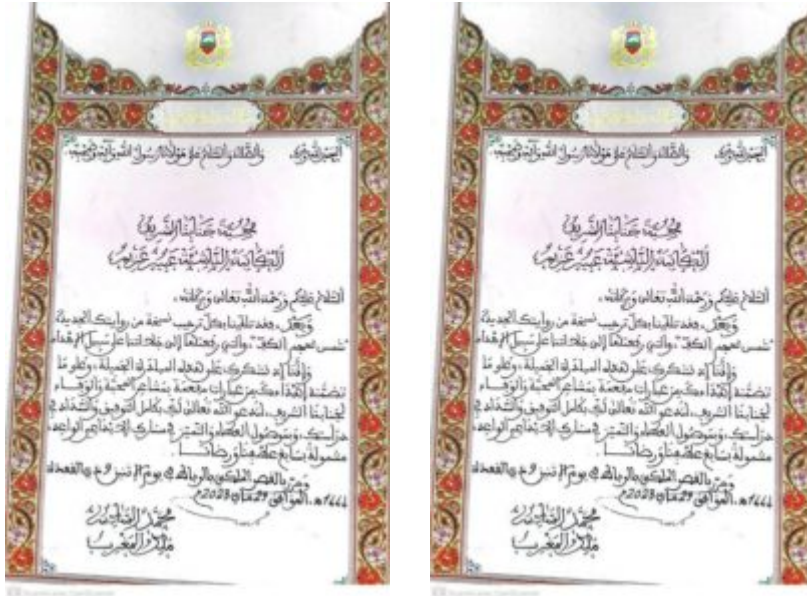 الحمد لله وحده، والصلاة والسلام على مولانا رسول الله وآله وصحبه
محبوبة جنابنا الشريف
الكاتبة الناشئة عبير عزيم
السلام عليكم ورحمة الله تعالى وبركاته،
وبعد، فقد تلقينا بكل ترحيب نسخة من روايتك الجديدة
"شمس تحجبها الكف"، والتي رفعتها إلى جلالتنا على سبيل الإهداء
وإننا إذ نشكرك على هذه المبادرة الجميلة، وعلى ما
تضمنه إهداؤك من عبارات مفعمة بمشاعر المحبة والوفاء
لجنابنا الشريف، لندعو الله تعالى لك بكامل التوفيق والسداد في
دراستك، وبموصول العطاء والتميز في مسارك الإبداعي الواعد،
مشمولة بسابغ عطفنا ورضانا.
وحرر بالقصر الملكي بالرباط في يوم الإثنين ذي القعدة
1444هـ، الموافق 29 ماي 2023م
محمد السادس
ملك المغرب
الحمد لله وحده، والصلاة والسلام على مولانا رسول الله وآله وصحبه
محبوبة جنابنا الشريف
الكاتبة الناشئة عبير عزيم
السلام عليكم ورحمة الله تعالى وبركاته،
وبعد، فقد تلقينا بكل ترحيب نسخة من روايتك الجديدة
"شمس تحجبها الكف"، والتي رفعتها إلى جلالتنا على سبيل الإهداء
وإننا إذ نشكرك على هذه المبادرة الجميلة، وعلى ما
تضمنه إهداؤك من عبارات مفعمة بمشاعر المحبة والوفاء
لجنابنا الشريف، لندعو الله تعالى لك بكامل التوفيق والسداد في
دراستك، وبموصول العطاء والتميز في مسارك الإبداعي الواعد،
مشمولة بسابغ عطفنا ورضانا.
وحرر بالقصر الملكي بالرباط في يوم الإثنين ذي القعدة
1444هـ، الموافق 29 ماي 2023م
محمد السادس
ملك المغرب